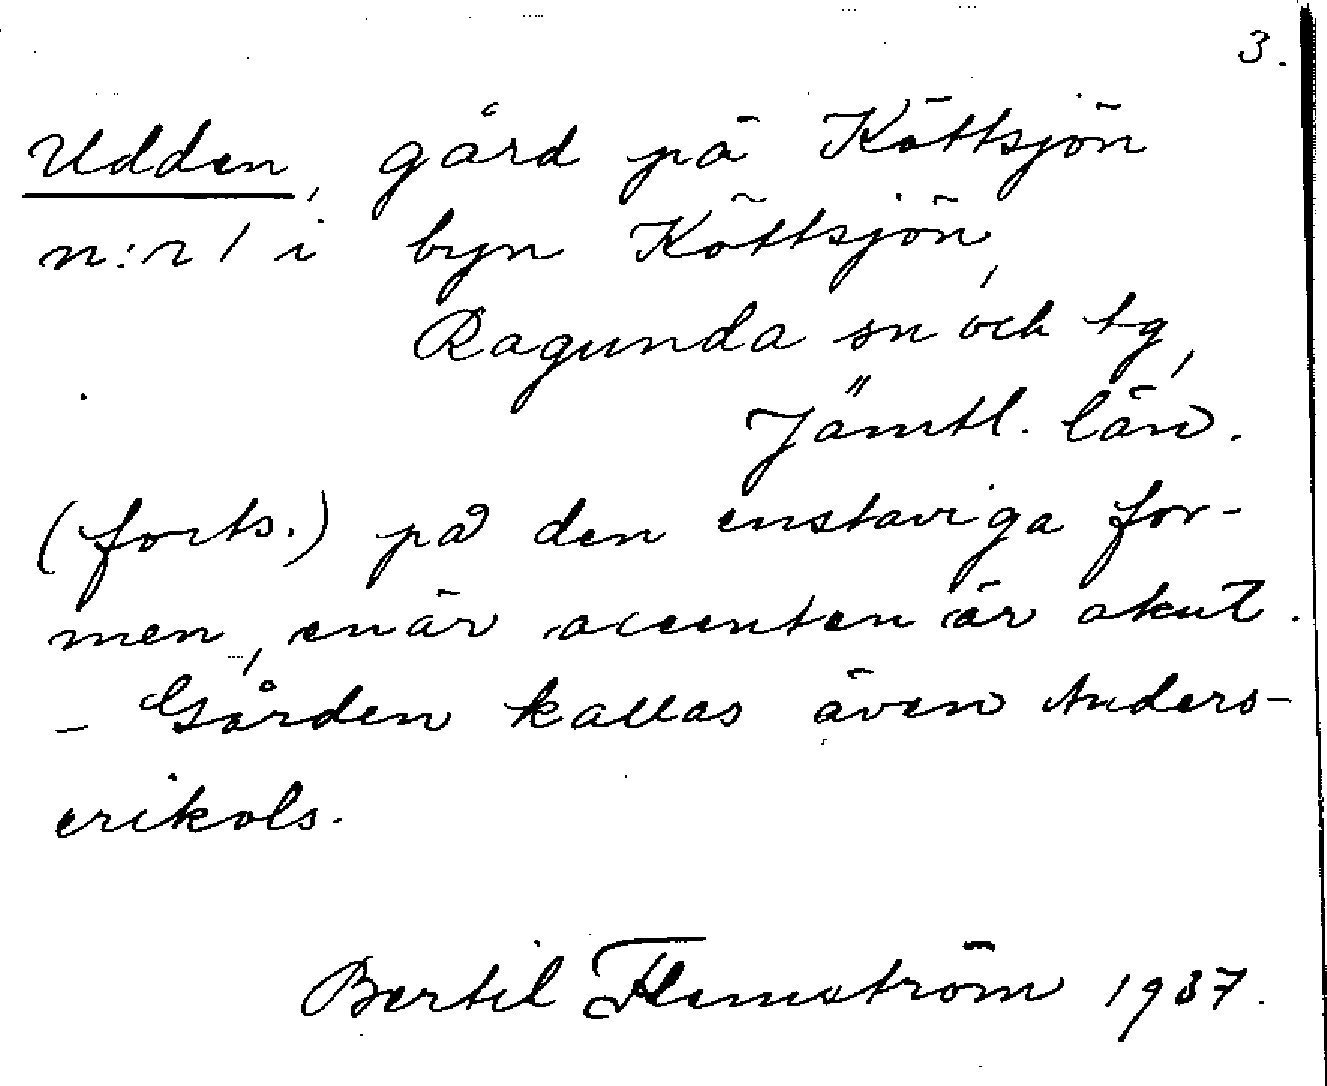 3.
Udden, gård på Köttsjön
n:r 1 i byn Köttsjön,
Ragunda sn och tg,
Jämtl. län.
(forts.) på den enstaviga for-
men, enär accenten är akut.
- Gården kallas även Anders-
erikols.
Bertil Flemström 1937.